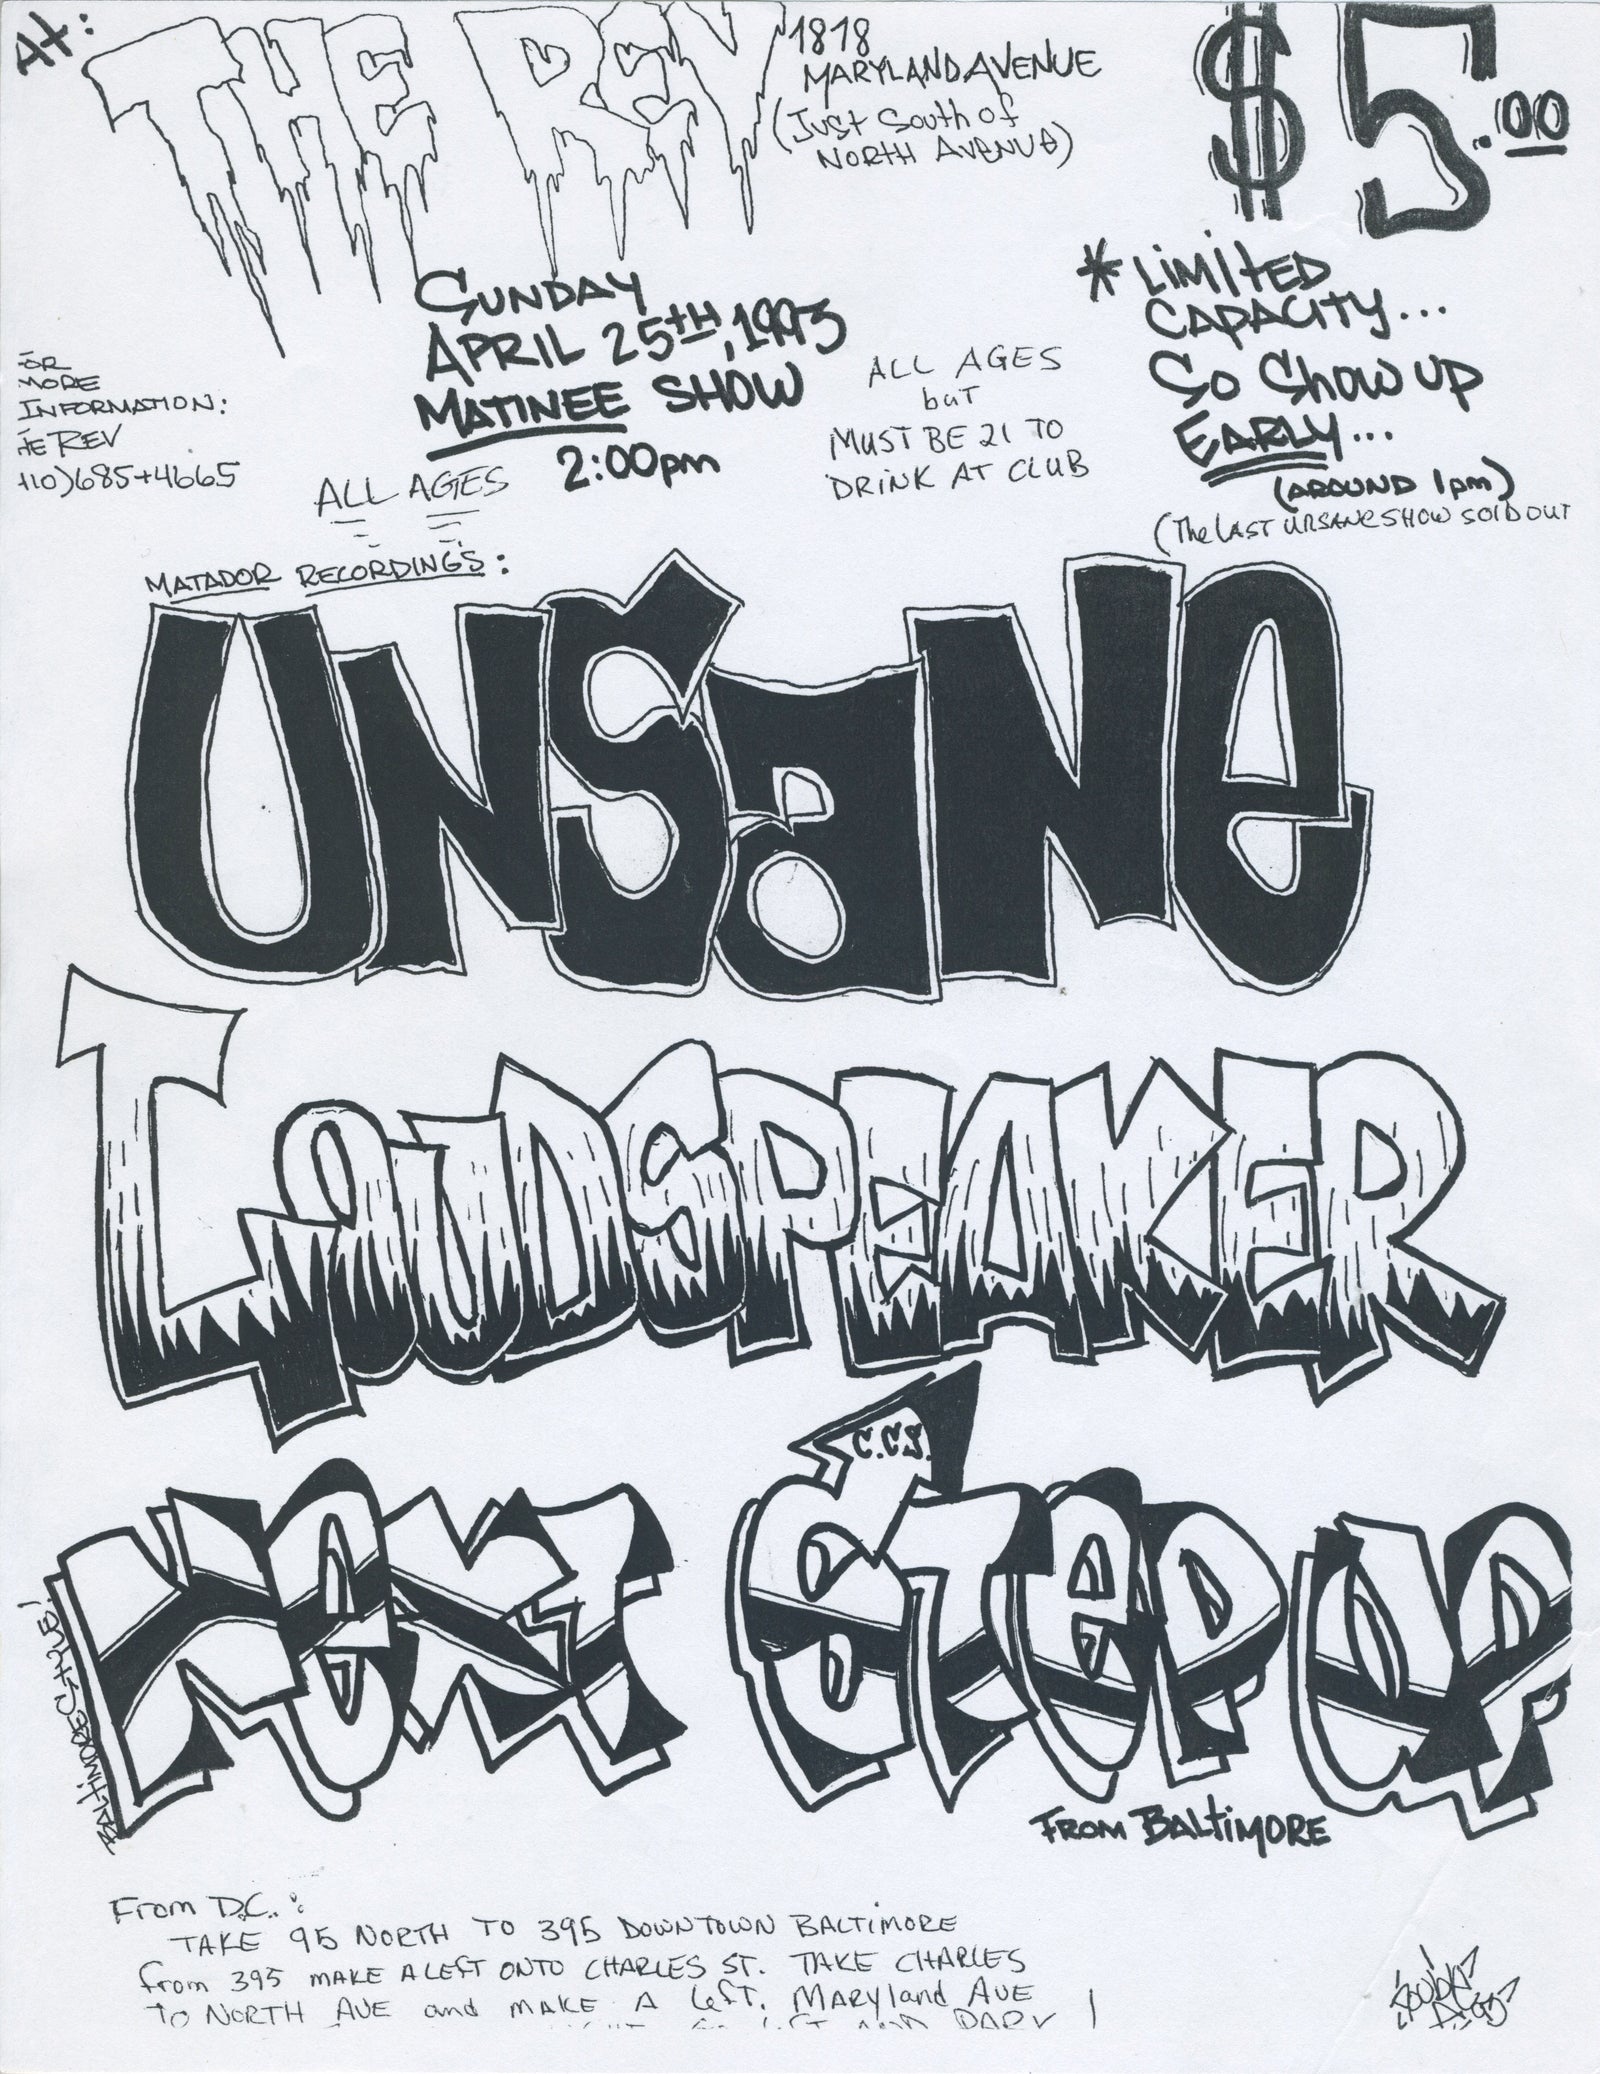 At:
THE REV
1818
MARYLAND AVENUE
(Just South of
NORTH AVENUE)
$5.00
SUNDAY
APRIL 25TH, 1993
MATINEE SHOW
2:00pm
ALL AGES
OR
MORE
INFORMATION:
HE REV
410)685+4665
ALL AGES
but
MUST BE 21 TO
DRINK AT CLUB
*LIMITED
CAPACITY...
So Show up
EARLY...
(AROUND 1pm)
(The LAST UNSANE SHOW SOLD OUT
MATADOR RECORDINGS:
UNSANE
LOUDSPEAKER
C.C.S.
NEXT STEP UP
BALTIMORE
FROM BALTIMORE
From D.C.:
TAKE 95 NORTH TO 395 DOWNTOWN BALTIMORE
from 395 MAKE A LEFT ONTO CHARLES ST. TAKE CHARLES
TO NORTH AVE and MAKE A Left. Maryland AVE
LEFT AND PARK